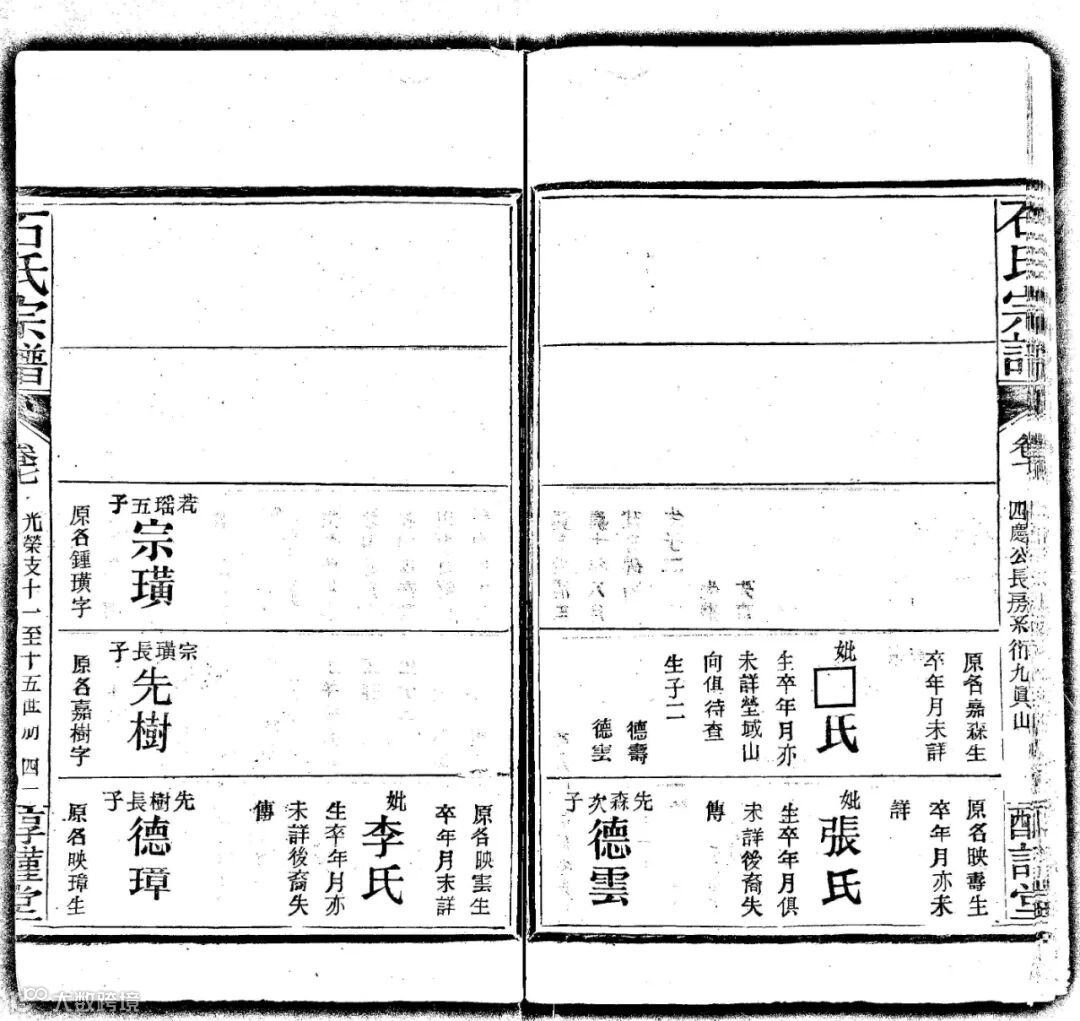 石氏宗譜
卷七
四慶公長房系衍九眞山
原名嘉森生
卒年月未詳
妣□氏
生卒年月亦
未詳塋域山
向俱待查
生子二
德壽
德雲
原名映壽生
卒年月亦未
詳
妣張氏
生卒年月俱
未詳後裔失
傳
先森次子
德雲
若瑶五子
宗璜
原名鍾璜字
宗璜長子
先樹
原名嘉樹字
原名映雲生
卒年月未詳
妣李氏
生卒年月亦
未詳後裔失
傳
先樹長子
德璋
原名映璋生
石氏宗譜
卷七
光榮支十一至十五世
四一
大数跨境